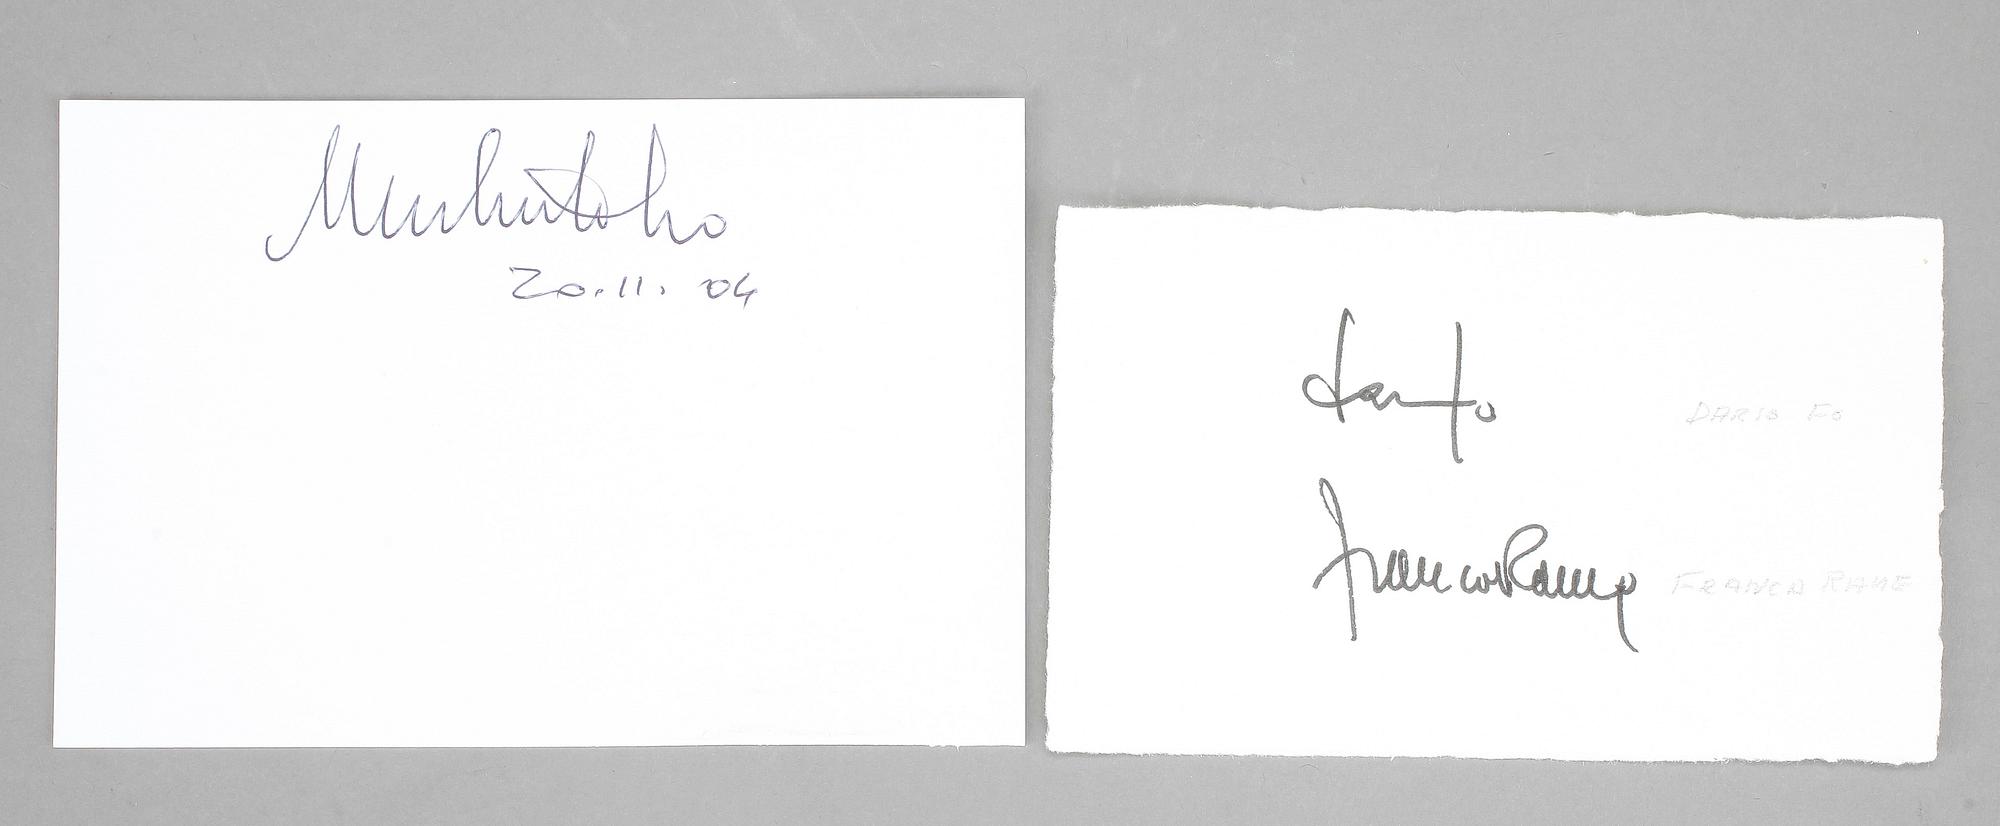 20.11.04
dario fo DARIO FO
franca Rame FRANCA RAME